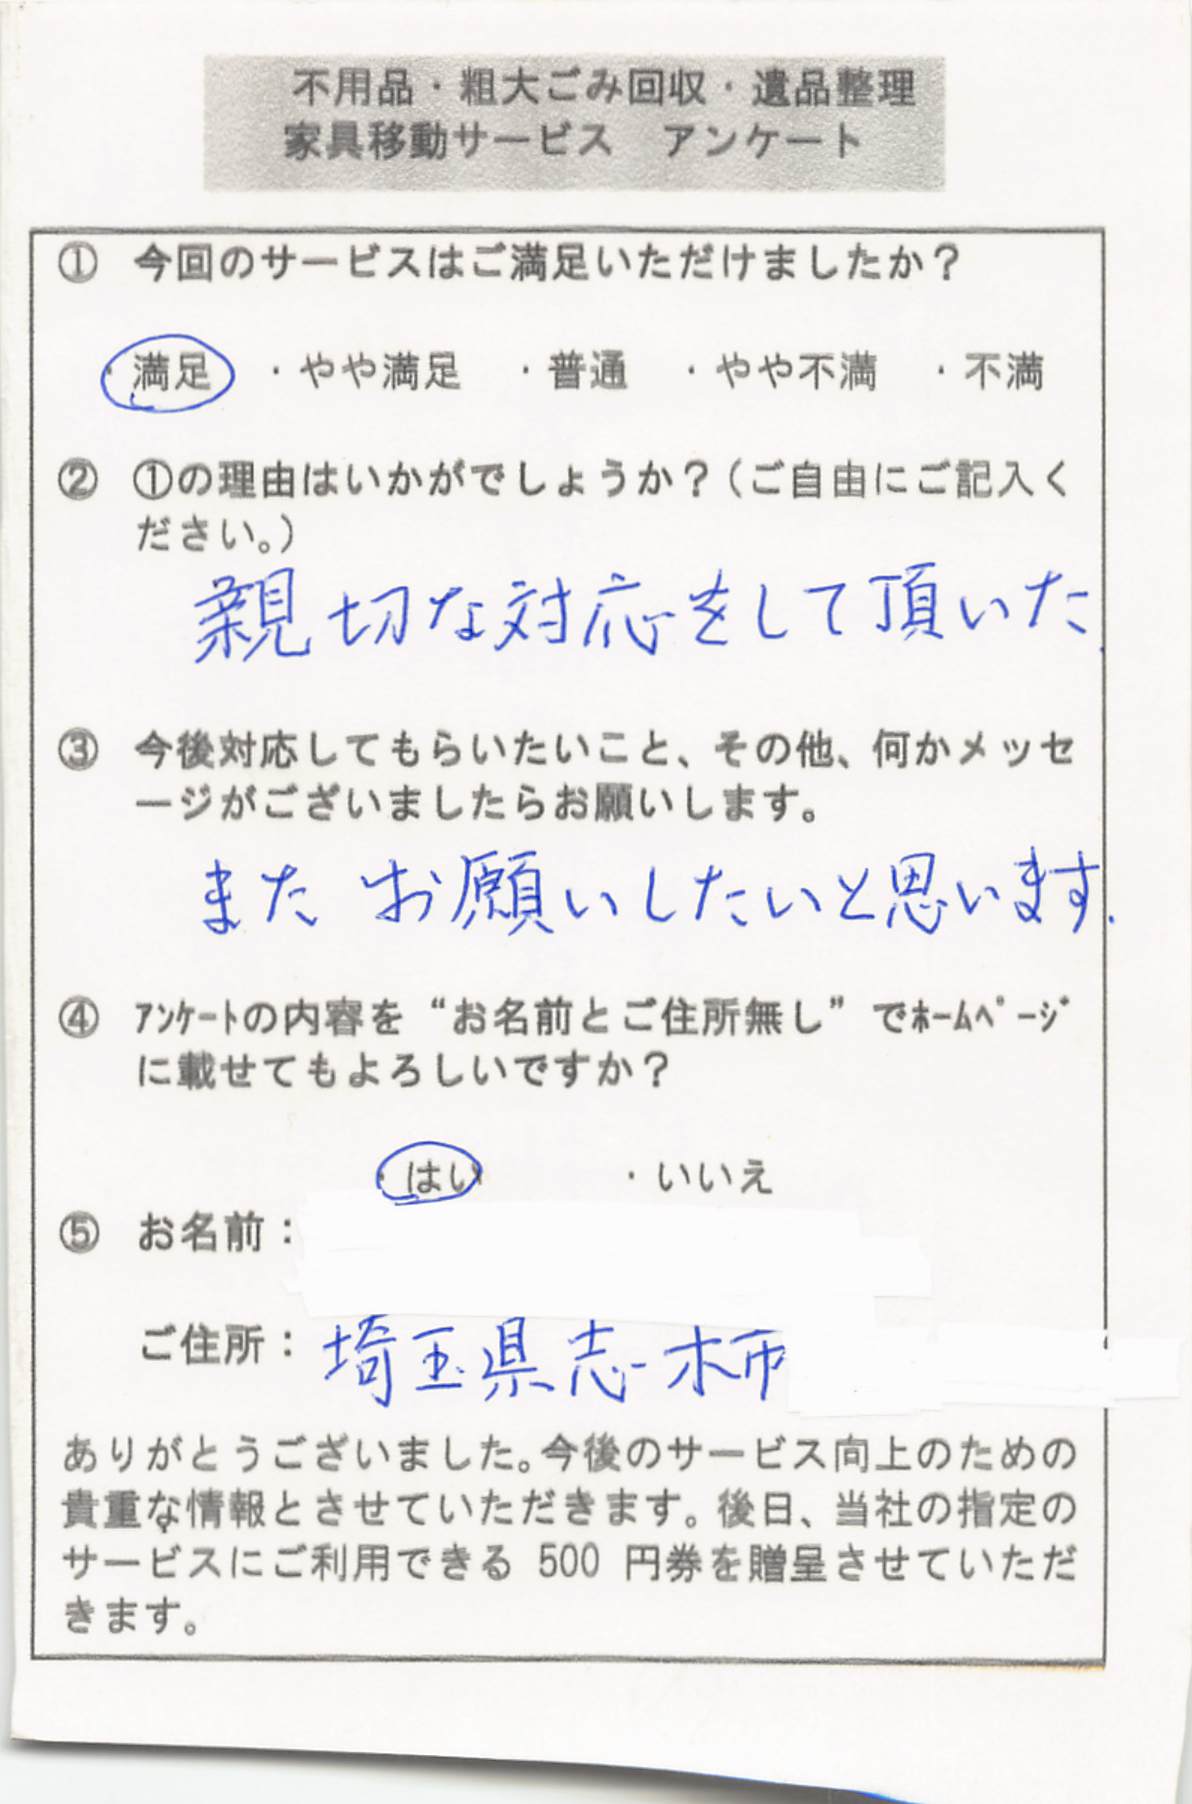 不用品・粗大ごみ回収・遺品整理
家具移動サービス　アンケート
① 今回のサービスはご満足いただけましたか？
・満足 ・やや満足 ・普通 ・やや不満 ・不満
② ①の理由はいかがでしょうか？（ご自由にご記入く
ださい。）
親切な対応をして頂いた.
③ 今後対応してもらいたいこと、その他、何かメッセ
ージがございましたらお願いします。
また お願いしたいと思います.
④ ｱﾝｹｰﾄの内容を“お名前とご住所無し”でﾎｰﾑﾍﾟｰｼﾞ
に載せてもよろしいですか？
・はい ・いいえ
⑤ お名前：
ご住所：埼玉県志木市
ありがとうございました。今後のサービス向上のための
貴重な情報とさせていただきます。後日、当社の指定の
サービスにご利用できる 500 円券を贈呈させていただ
きます。